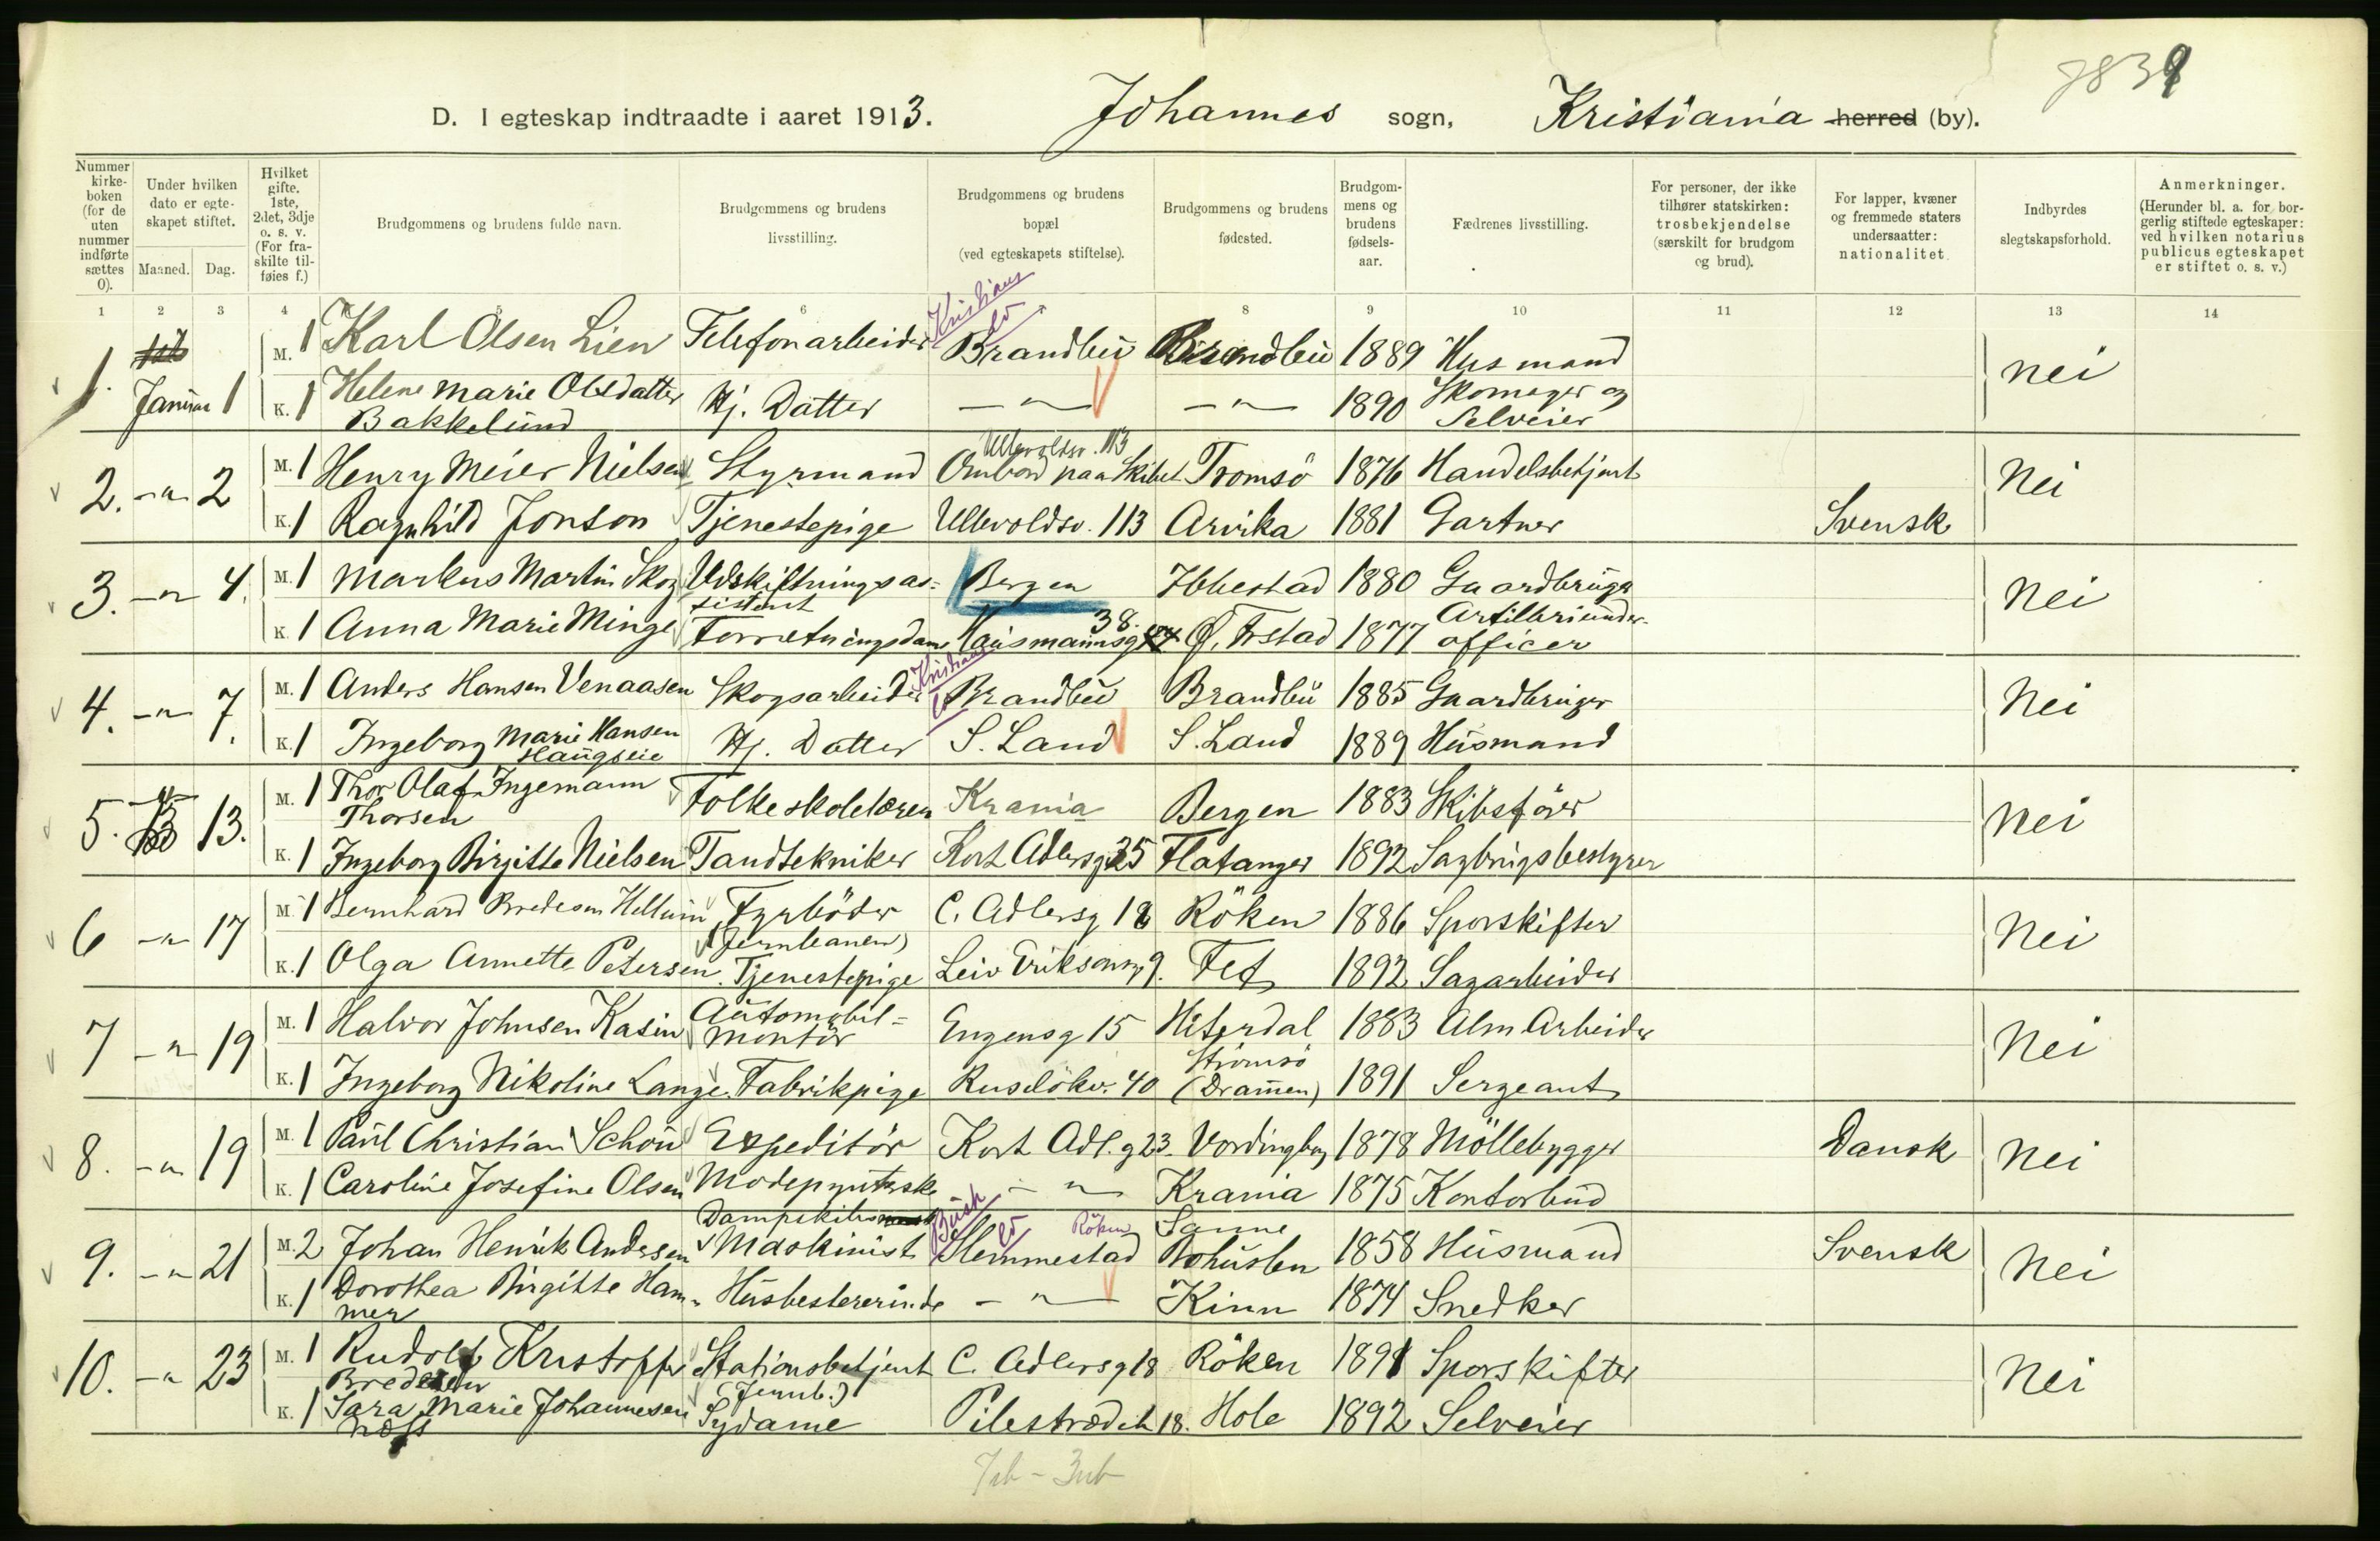 D. I egteskap indtraadte i aaret 1913. Johannes sogn, Kristiania herred (by).
Nummer kirke-boken (for de uten nummer indførte sættes 0).
Under hvilken dato er egte-skapet stiftet.
Maaned. Dag.
Hvilket gifte. 1ste, 2det, 3dje o. s. v. (For fra-skilte til-føies f.)
Brudgommens og brudens fulde navn.
Brudgommens og brudens livsstilling.
Brudgommens og brudens bopæl (ved egteskapets stiftelse).
Brudgommens og brudens fødested.
Brudgom-mens og brudens fødsels-aar.
Fædrenes livsstilling.
For personer, der ikke tilhører statskirken: trosbekjendelse (særskilt for brudgom og brud).
For lapper, kvæner og fremmede staters undersaatter: nationalitet.
Indbyrdes slegtskapsforhold.
Anmerkninger. (Herunder bl. a. for bor-gerlig stiftede egteskaper: ved hvilken notarius publicus egteskapet er stiftet o. s. v.)
1 2 3 4 5 6 8 9 10 11 12 13 14
Kristians
1. Januar 1 M. 1 Karl Olsen Lien Telefonarbeider Brandbu Brandbu 1889 Husmand Nei
K. 1 Helene Marie Olsdatter Bakkelund Hj. Datter -"- -"- 1890 Skomager og Selveier
Ullevoldsv. 113
2. -"- 2 M. 1 Henry Meier Nielsen Styrmand Ombord paa Skibet Tromsö 1876 Handelsbetjent Nei
K. 1 Ragnhild Jonson Tjenestepige Ullevoldsv. 113 Arvika 1881 Gartner Svensk
3. -"- 4. M. 1 Markus Martin Skog Udskiftningsas-sistent Bergen Ibbestad 1880 Gaardbruger Nei
K. 1 Anna Marie Minge Forretningsdame Hausmannsg 38. Ø. Frstad 1877 Artilleriunder-officer
Kristians
4. -"- 7. M. 1 Anders Hansen Venaasen Skogsarbeider Brandbu Brandbu 1885 Gaardbruger Nei
K. 1 Ingeborg Marie Hansen Haugseie Hj. Datter S. Land S. Land 1889 Husmand
5. -"- 13. M. 1 Thor Olaf Ingemann Thorsen Folkeskolelærer Krania Bergen 1883 Skibsförer Nei
K. 1 Ingeborg Birgitte Nielsen Tandtekniker Kort Adlersg 35 Flatanger 1892 Sagbrugsbestyrer
6 -"- 17 M. 1 Bernhard Bredesen Hellum Fyrböder (Jernbanen) C. Adlersg 18 Röken 1886 Sporskifter Nei
K. 1 Olga Annette Petersen Tjenestepige Leiv Eriksonsg 9. Fet 1892 Sagarbeider
7 -"- 19 M. 1 Halvor Johnsen Kasin Automobil-montör Engensg 15 Hiterdal 1883 Alm Arbeider Nei
K. 1 Ingeborg Nikoline Lange Fabrikpige Ruselökv. 40 Strömsö (Drammen) 1891 Sergeant
8. -"- 19 M. 1 Paul Christian Schou Expeditör Kort Adl. g 23. Vordingborg 1878 Möllebygger Dansk Nei
K. 1 Caroline Josefine Olsen Modepynterske -"- Krania 1875 Kontorbud
Busk Röken
9. -"- 21 M. 2 Johan Henrik Andersen Dampskibs Maskinist Slemmestad Sanne Bohuslen 1858 Husmand Svensk Nei
K. 1 Dorothea Birgitte Hammer Husbestererinde -"- Kinn 1874 Snedker
10. -"- 23 M. 1 Rudolf Kristoffer Bredesen Stationsbetjent (Jernb.) C. Adlersg 18 Röken 1891 Sporskifter Nei
K. 1 Sara Marie Johannesen Næss Sydame Pilestrædet 18. Hole 1892 Selveier